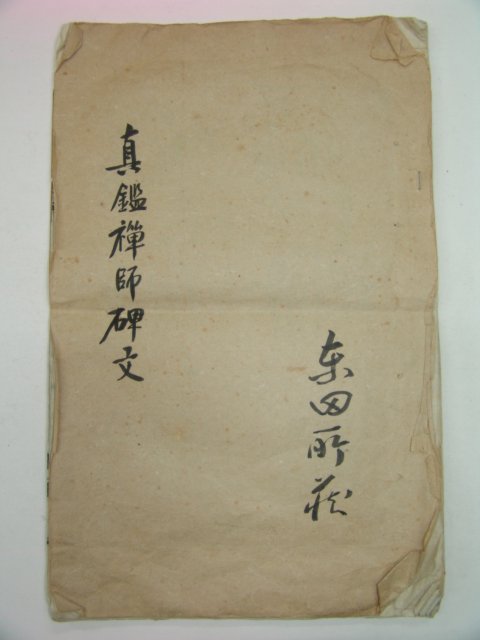 真鑑禪師碑文
東田所藏